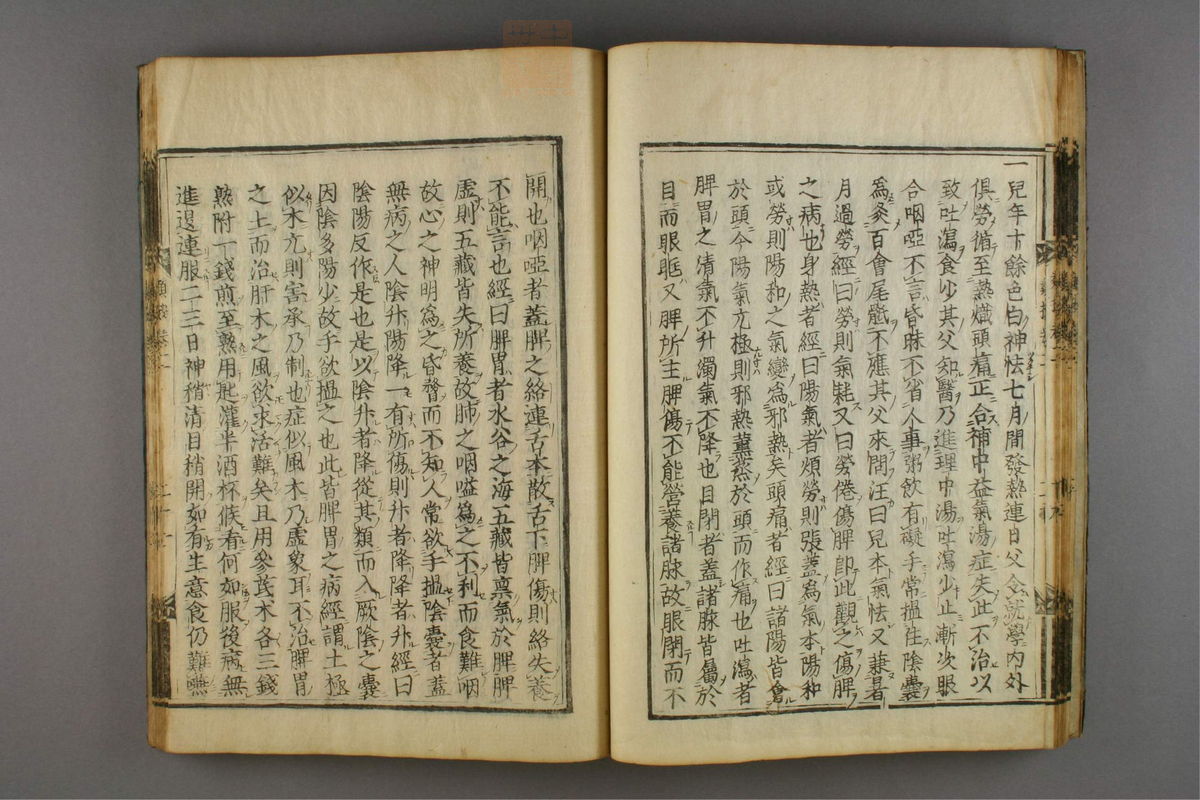 一兒年十餘色白神怯七月間發熱連日父令就學內外
俱勞循至熱熾頭痛正合補中益氣湯症失此不治以
致吐瀉食少其父知醫乃進理中湯吐瀉少止漸次眼
合咽啞不言昏昧不省人事粥飲有礙手常搵住陰囊
為灸百會尾骶不應其父來問汪曰兒本氣怯又兼暑
月過勞經曰勞則氣耗又曰勞倦傷脾卽此觀之傷脾
之病也身熱者經曰陽氣者煩勞則張蓋為氣本陽和
或勞則陽和之氣變為邪熱矣頭痛者經曰諸陽皆會
於頭今陽氣亢極則邪熱薰蒸於頭而作痛也吐瀉者
脾胃之清氣不升濁氣不降也目閉者蓋諸脉皆屬於
目而眼眶又脾所主脾傷不能營養諸脉故眼閉而不
開也咽啞者蓋脾之絡連舌本散舌下脾傷則絡失養
不能言也經曰脾胃者水谷之海五藏皆禀氣於脾脾
虛則五藏皆失所養故肺之咽嗌為之不利而食難咽
故心之神明為之昏瞀而不知人常欲手搵陰囊者蓋
無病之人陰升陽降一有所傷則升者降降者升經曰
陰陽反作是也是以陰升者降從其類而入厥陰之囊
因陰多陽少故手欲搵之也此皆脾胃之病經謂土極
似木亢則害承乃制也症似風木乃虛象耳不治脾胃
之土而治肝木之風欲求活難矣且用參芪术各三錢
熟附一錢煎至熟用匙灌半酒杯候看何如服後病無
進退連服二三日神稍清目稍開如有生意食仍難嚥